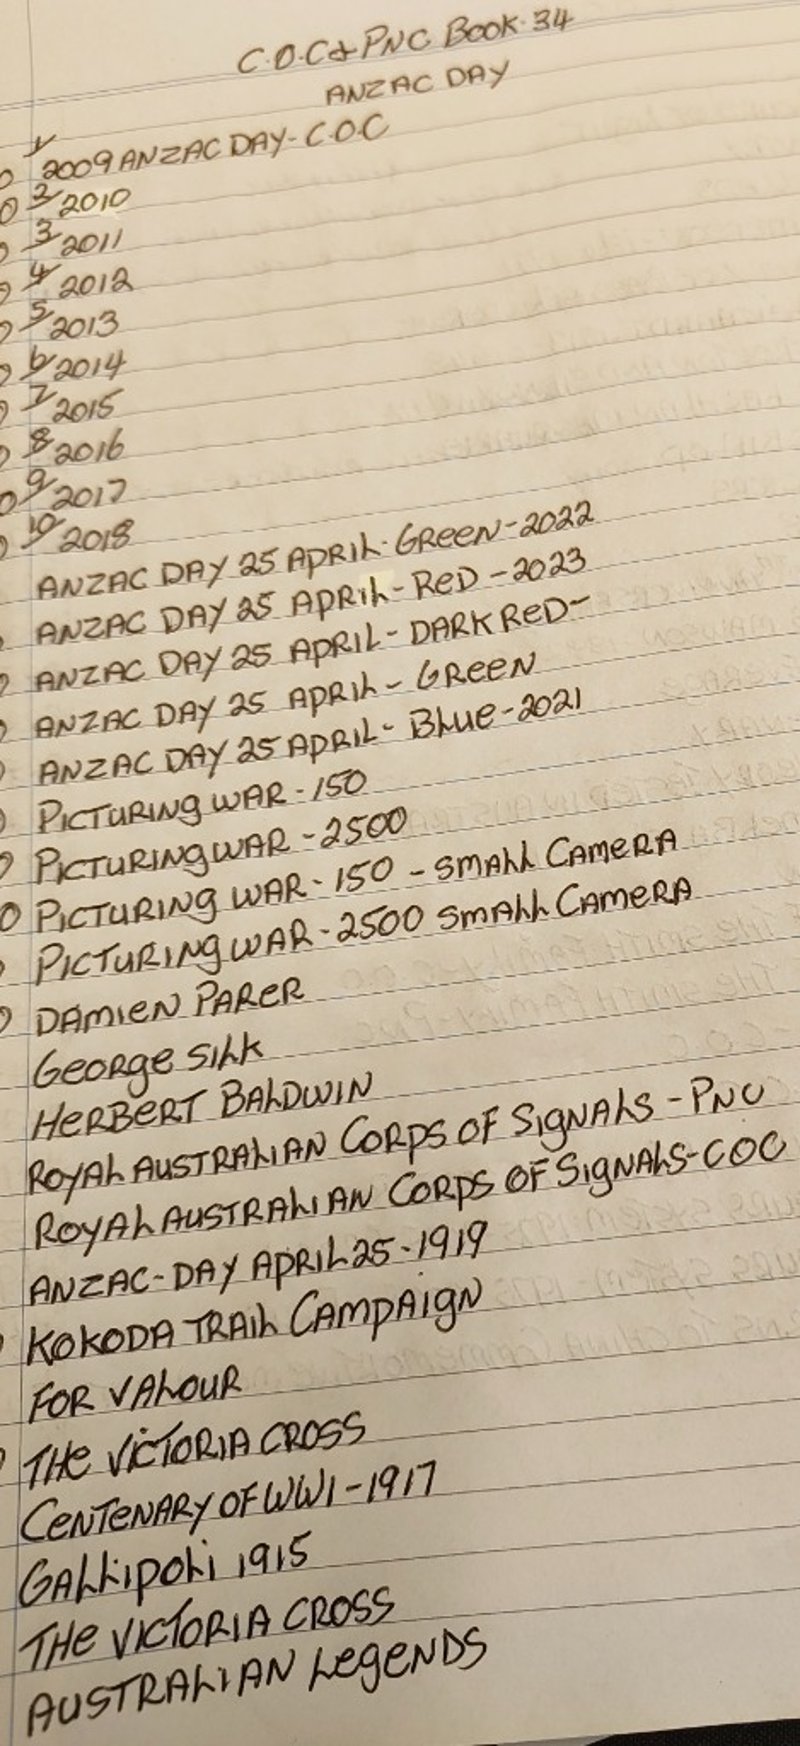 C.O.C & PNC BOOK.34
ANZAC DAY
1/ 2009 ANZAC DAY - C.O.C
2/ 2010
3/ 2011
4/ 2012
5/ 2013
6/ 2014
7/ 2015
8/ 2016
9/ 2017
10/ 2018
ANZAC DAY 25 APRIL - GREEN - 2022
ANZAC DAY 25 APRIL - RED - 2023
ANZAC DAY 25 APRIL - DARK RED -
ANZAC DAY 25 APRIL - GREEN
ANZAC DAY 25 APRIL - BLUE - 2021
PICTURING WAR - 150
PICTURING WAR - 2500
PICTURING WAR - 150 - SMALL CAMERA
PICTURING WAR - 2500 SMALL CAMERA
DAMIEN PARER
GEORGE SILK
HERBERT BALDWIN
ROYAL AUSTRALIAN CORPS OF SIGNALS - PNC
ROYAL AUSTRALIAN CORPS OF SIGNALS - COC
ANZAC - DAY APRIL 25 - 1919
KOKODA TRAIL CAMPAIGN
FOR VALOUR
THE VICTORIA CROSS
CENTENARY OF WW1 - 1917
GALLIPOLI 1915
THE VICTORIA CROSS
AUSTRALIAN LEGENDS